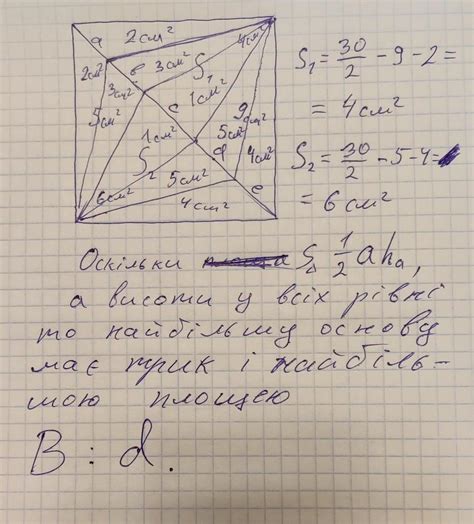 a 2см² 4см²
2см² в 3см² S₁
3см² 1см²
5см² c 9см²
1см² 5см²
S₂ d 4см²
5см² e
6см² 4см²
S₁ = 30/2 - 9 - 2 =
= 4см²
S₂ = 30/2 - 5 - 4 =
= 6см²
Оскільки S△ 1/2 aha,
а висоти у всіх рівні
то найбільшу основу
має трик і найбіль-
шою площею
В : d.